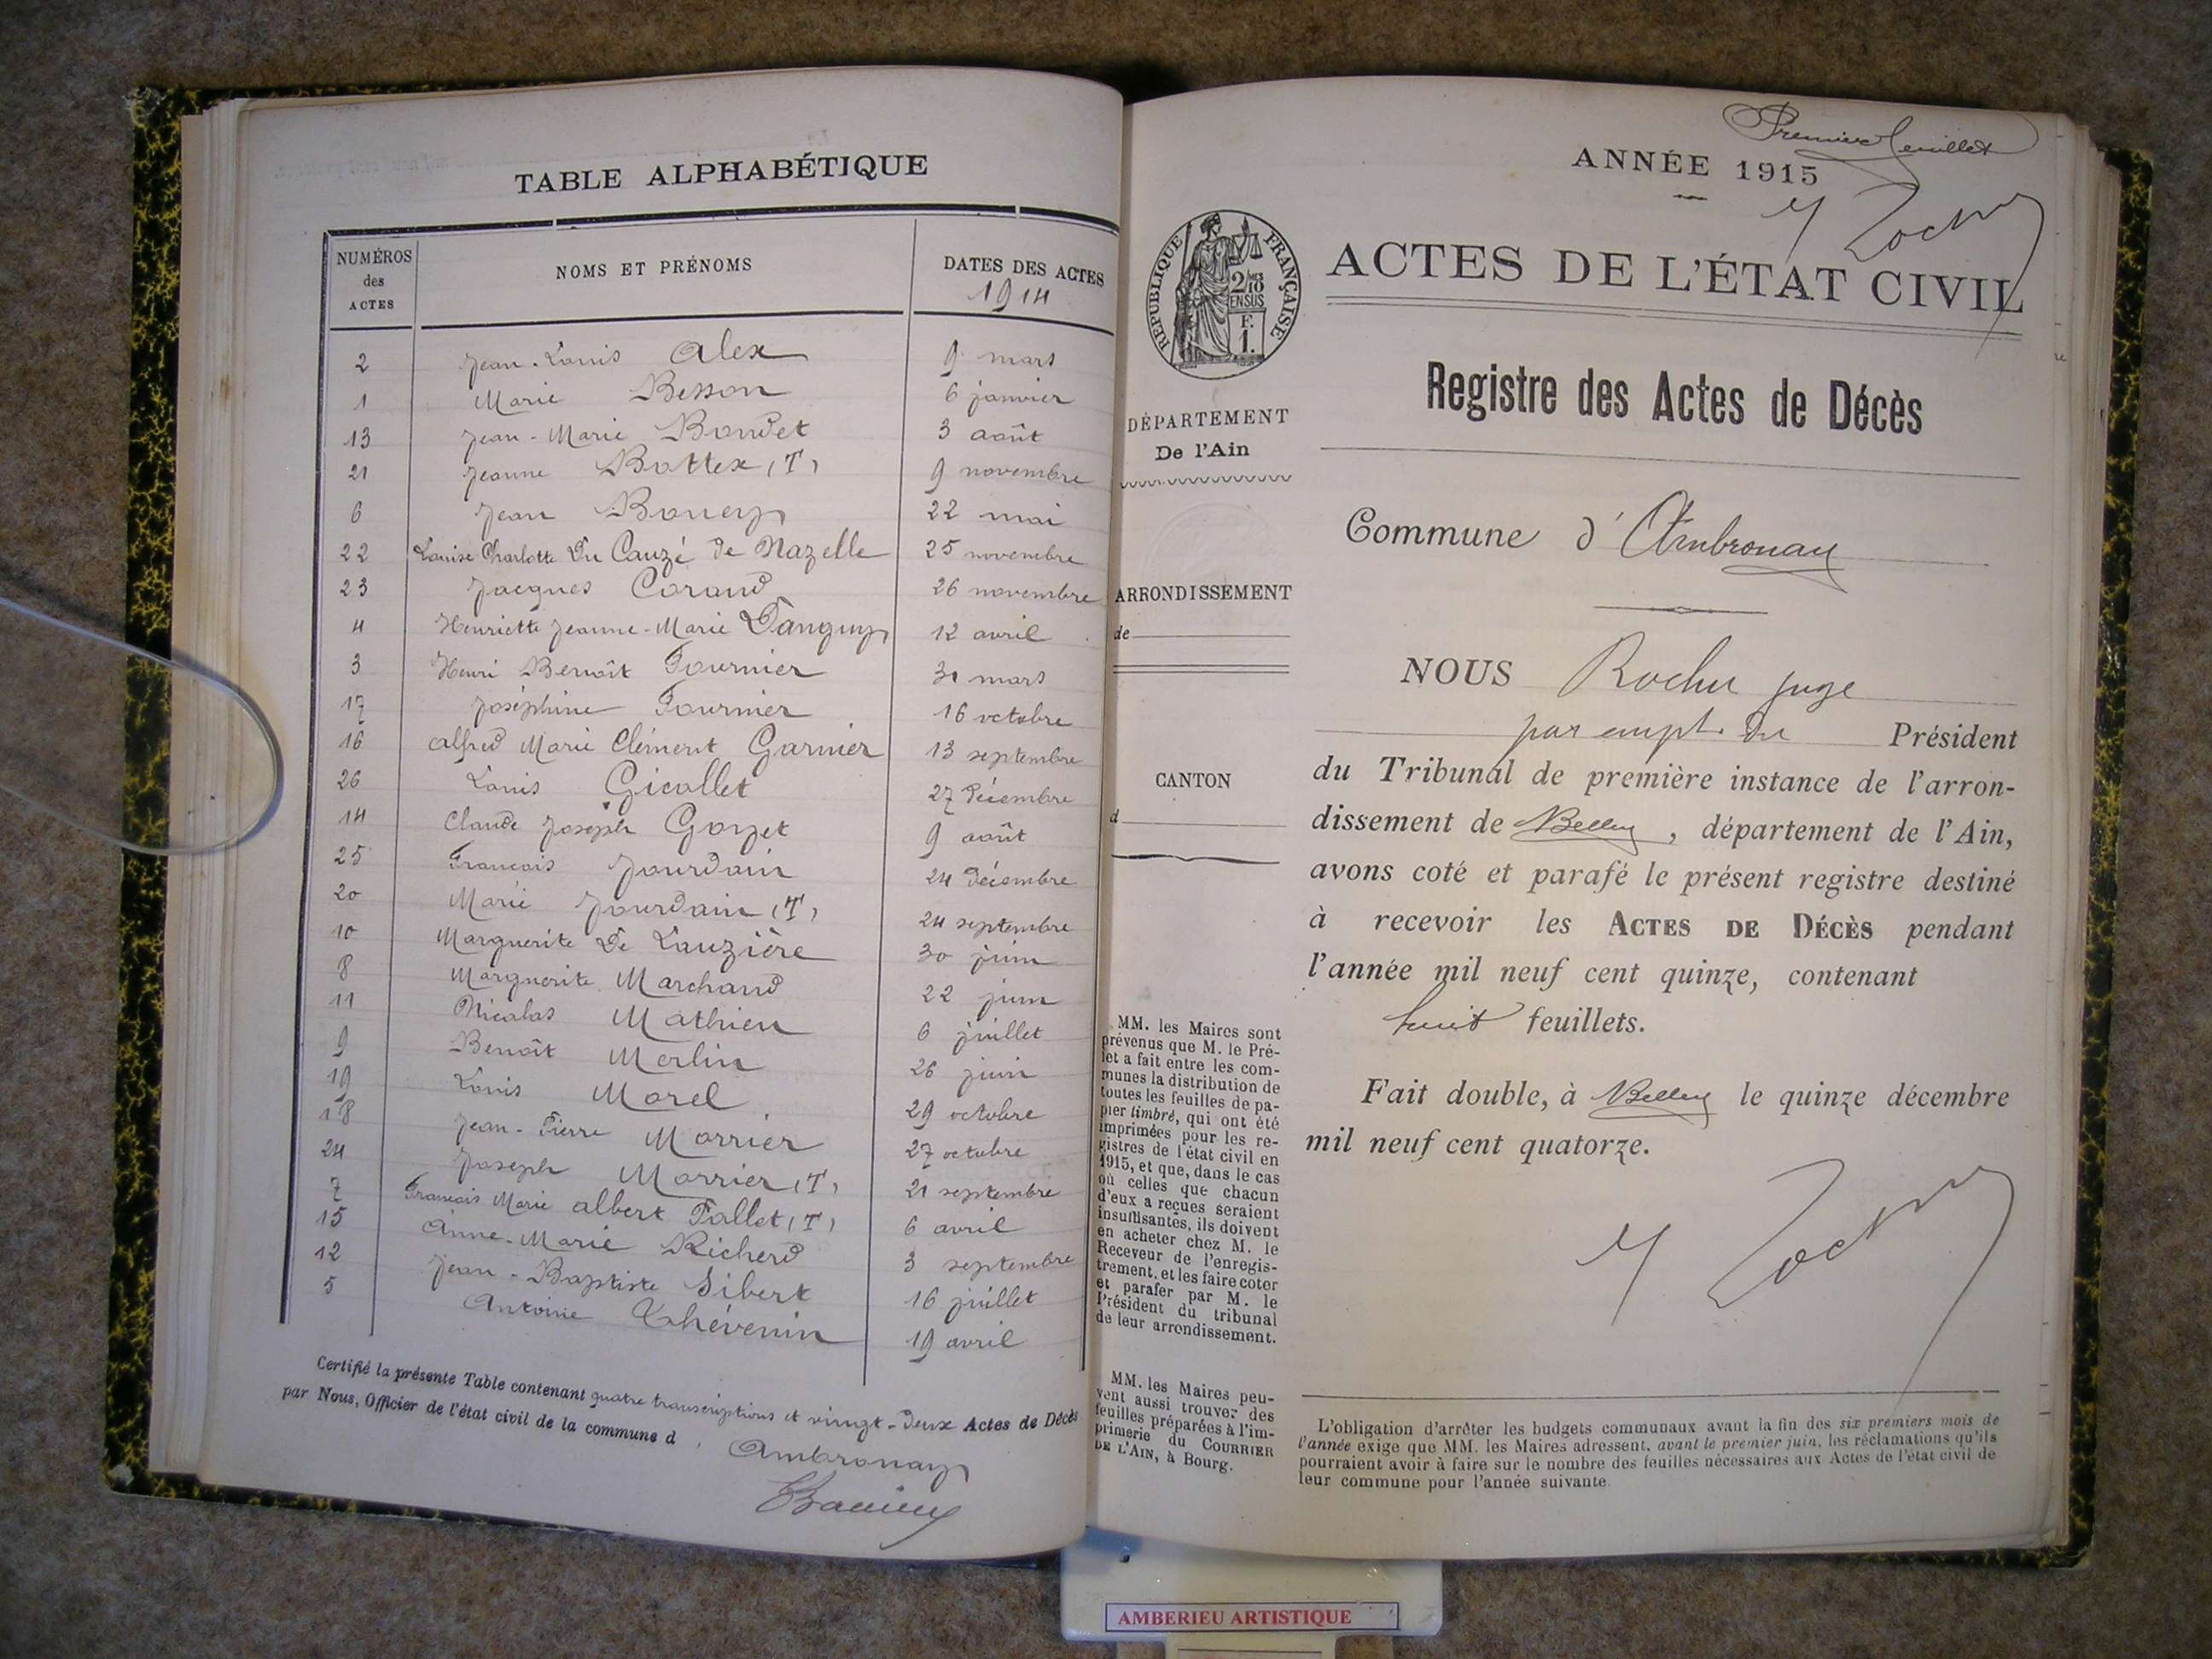 TABLE ALPHABÉTIQUE
NUMÉROS des ACTES
NOMS ET PRÉNOMS
DATES DES ACTES
1914
2 Jean-Louis Alex 9 mars
1 Marie Besson 6 janvier
13 Jean-Marie Bondet 3 août
21 Jeanne Bottex (T) 9 novembre
6 Jean Bouery 22 mai
22 Louise Charlotte Du Cauzé de Nazelle 25 novembre
23 Jacques Coraud 26 novembre
4 Henriette Jeanne-Marie Danguy 12 avril
3 Henri Benoît Fournier 31 mars
17 Joséphine Fournier 16 octobre
16 Alfred Marie Clément Garnier 13 septembre
26 Louis Gicollet 27 Décembre
14 Claude Joseph Gorjet 9 août
25 Francois Jourdain 24 Décembre
20 Marie Jourdain (T) 24 septembre
10 Marguerite De Lauzière 30 juin
8 Marguerite Marchand 22 juin
11 Nicolas Mathieu 6 juillet
9 Benoît Merlin 26 juin
19 Louis Morel 29 octobre
18 Jean-Pierre Morrier 27 octobre
24 Joseph Morrier (T) 21 septembre
7 Francois Marie Albert Pallet (T) 6 avril
15 Anne-Marie Richerd 3 septembre
12 Jean-Baptiste Sibert 16 juillet
5 Antoine Thévenin 19 avril
Certifié la présente Table contenant quatre transcriptions et vingt-deux Actes de Décès
par Nous, Officier de l'état civil de la commune d Ambronay
Premier feuillet
ANNÉE 1915
RÉPUBLIQUE FRANÇAISE
2/10 EN SUS
F. 1.
ACTES DE L'ÉTAT CIVIL
Registre des Actes de Décès
DÉPARTEMENT
De l'Ain
Commune d'Ambronay
ARRONDISSEMENT
de
CANTON
d
NOUS Rocher juge
par empt. du Président
du Tribunal de première instance de l'arron-
dissement de Belley, département de l'Ain,
avons coté et parafé le présent registre destiné
à recevoir les ACTES DE DÉCÈS pendant
l'année mil neuf cent quinze, contenant
huit feuillets.
Fait double, à Belley le quinze décembre
mil neuf cent quatorze.
MM. les Maires sont
prévenus que M. le Pré-
fet a fait entre les com-
munes la distribution de
toutes les feuilles de pa-
pier timbré, qui ont été
imprimées pour les re-
gistres de l'état civil en
1915, et que, dans le cas
où celles que chacun
d'eux a reçues seraient
insuffisantes, ils doivent
en acheter chez M. le
Receveur de l'enregis-
trement, et les faire coter
et parafer par M. le
Président du tribunal
de leur arrondissement.
MM. les Maires peu-
vent aussi trouver des
feuilles préparées à l'im-
primerie du COURRIER
DE L'AIN, à Bourg.
L'obligation d'arrêter les budgets communaux avant la fin des six premiers mois de
l'année exige que MM. les Maires adressent, avant le premier juin, les réclamations qu'ils
pourraient avoir à faire sur le nombre des feuilles nécessaires aux Actes de l'état civil de
leur commune pour l'année suivante.
AMBERIEU ARTISTIQUE